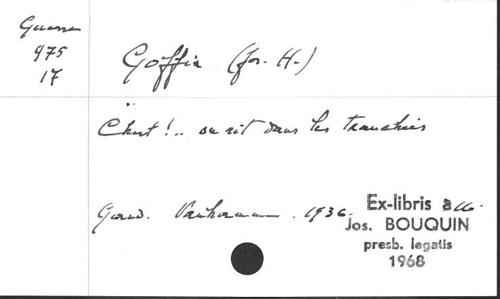 Guerre
975
17
Goffin (Jos. H.)
Chut !.. on rit dans les tranchées
Gand. 1936.
Ex-libris
Jos. BOUQUIN
presb. legatis
1968